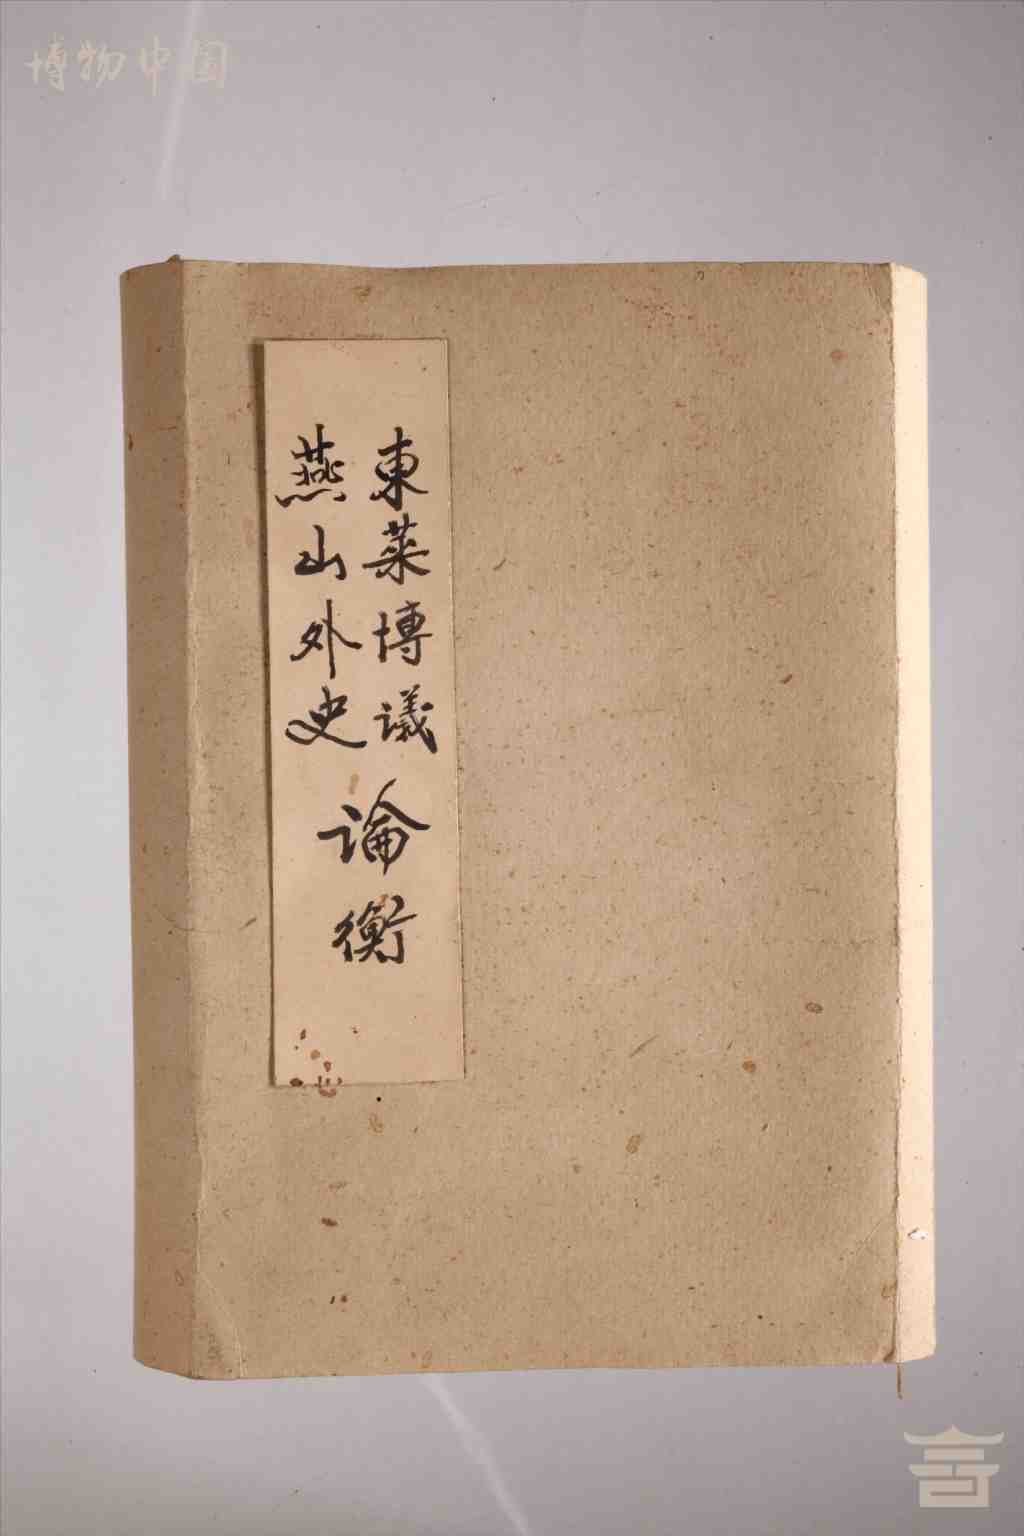 博物中国
東萊博議
燕山外史
論衡